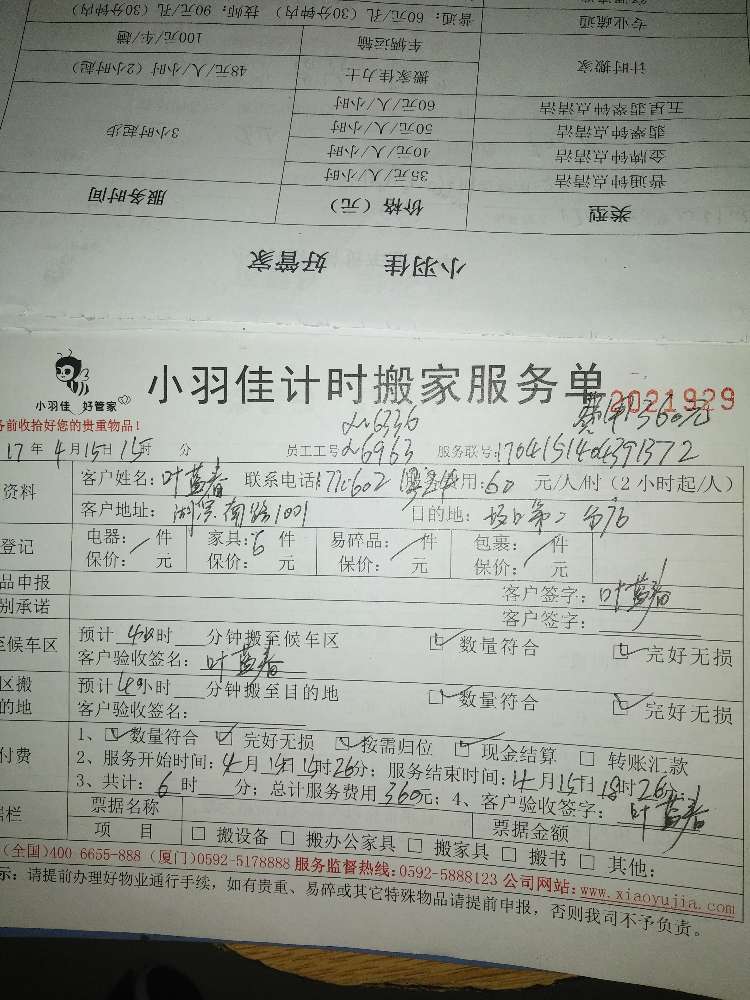 专业疏通 普通：60元/孔（30分钟内） 技师：90元/孔（30分钟内）
计时搬家 车辆运输 100元/车/趟
搬家佳力士 48元/人/小时（2小时起）
五星翡翠钟点清洁 60元/人/小时
翡翠钟点清洁 50元/人/小时
金牌钟点清洁 40元/人/小时
普通钟点清洁 35元/人/小时
3小时起步
类型 价格（元） 服务时间
小羽佳 好管家
小羽佳 好管家
小羽佳计时搬家服务单
2021929
费用360元
务前收拾好您的贵重物品！
6336
17年4月15日15时 分 员工工号 6963 服务联号:
资料 客户姓名：叶蓝春 联系电话: 用:60 元/人/时（2小时起/人）
客户地址：湖滨南路1001 目的地：
登记 电器： 件 家具：6 件 易碎品： 件 包裹： 件
保价： 元 保价： 元 保价： 元 保价： 元
品申报 客户签字：叶蓝春
别承诺 客户签字：
至候车区 预计 时 分钟搬至候车区 数量符合 完好无损
客户验收签名：叶蓝春
区搬 预计 小时 分钟搬至目的地 数量符合 完好无损
的地 客户验收签名：
付费 1、数量符合 完好无损 按需归位 现金结算 转账汇款
2、服务开始时间：4月15日15时26分；服务结束时间：4月15日18时26分；
3、共计：6时 分；总计服务费用360元；4、客户验收签字：叶蓝春
票据名称 票据金额
栏 项目 搬设备 搬办公家具 搬家具 搬书 其他：
(全国)400-6655-888 (厦门)0592-5178888 服务监督热线:0592-5888123 公司网站:www.xiaoyujia.com
示：请提前办理好物业通行手续，如有贵重、易碎或其它特殊物品请提前申报，否则我司不予负责。